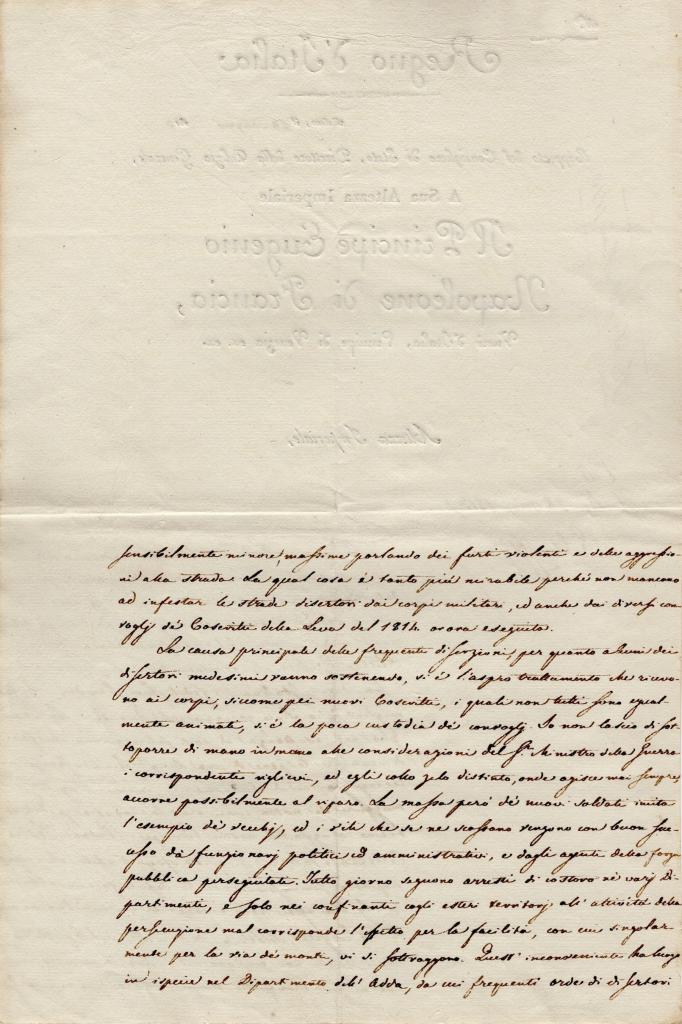 Regno d'Italia
Rapporto del Consigliere di Stato, Direttore della Polizia Generale,
A Sua Altezza Imperiale
Il Principe Eugenio
Napoleone di Francia,
Vicerè d'Italia, Principe di Venezia ec. ec.
Altezza Imperiale,
sensibilmente minore, massime parlando dei furti violenti e delle aggressio-
ni alla strada. La qual cosa è tanto più mirabile perchè non mancano
ad infestar le strade disertori dai corpi militari, ed anche dai diversi con-
voglj de' Coscritti della Leva del 1814 or ora eseguita.
La causa principale delle frequenti diserzioni, per quanto alcuni dei
disertori medesimi vanno sostenendo, si è l'aspro trattamento che ricevo-
no ai corpi, siccome pei nuovi Coscritti, i quali non tutti sono egual-
mente animati, si è la poca custodia de' convoglj. Io non lascio di sot-
toporre di mano in mano alle considerazioni del Sr. Ministro della Guerra
i corrispondenti riglievi, ed egli collo zelo distinto, onde agisce mai sempre,
accorre possibilmente al riparo. La massa però de' nuovi soldati imita
l'esempio de' vecchj, ed i vili che se ne scostano vengono con buon suc-
cesso da' funzionarj politici ed amministrativi, e dagli agenti della forza
pubblica perseguitati. Tutto giorno seguono arresti di costoro ne' varj Di-
partimenti, e solo nei confinanti cogli esteri territorj all' attività della
persecuzione mal corrisponde l'effetto per la facilità, con cui singolar-
mente per la via de' monti, vi si sottraggono. Quest' inconveniente ha luogo
in ispecie nel Dipartimento dell' Adda, da cui frequenti orde di disertori